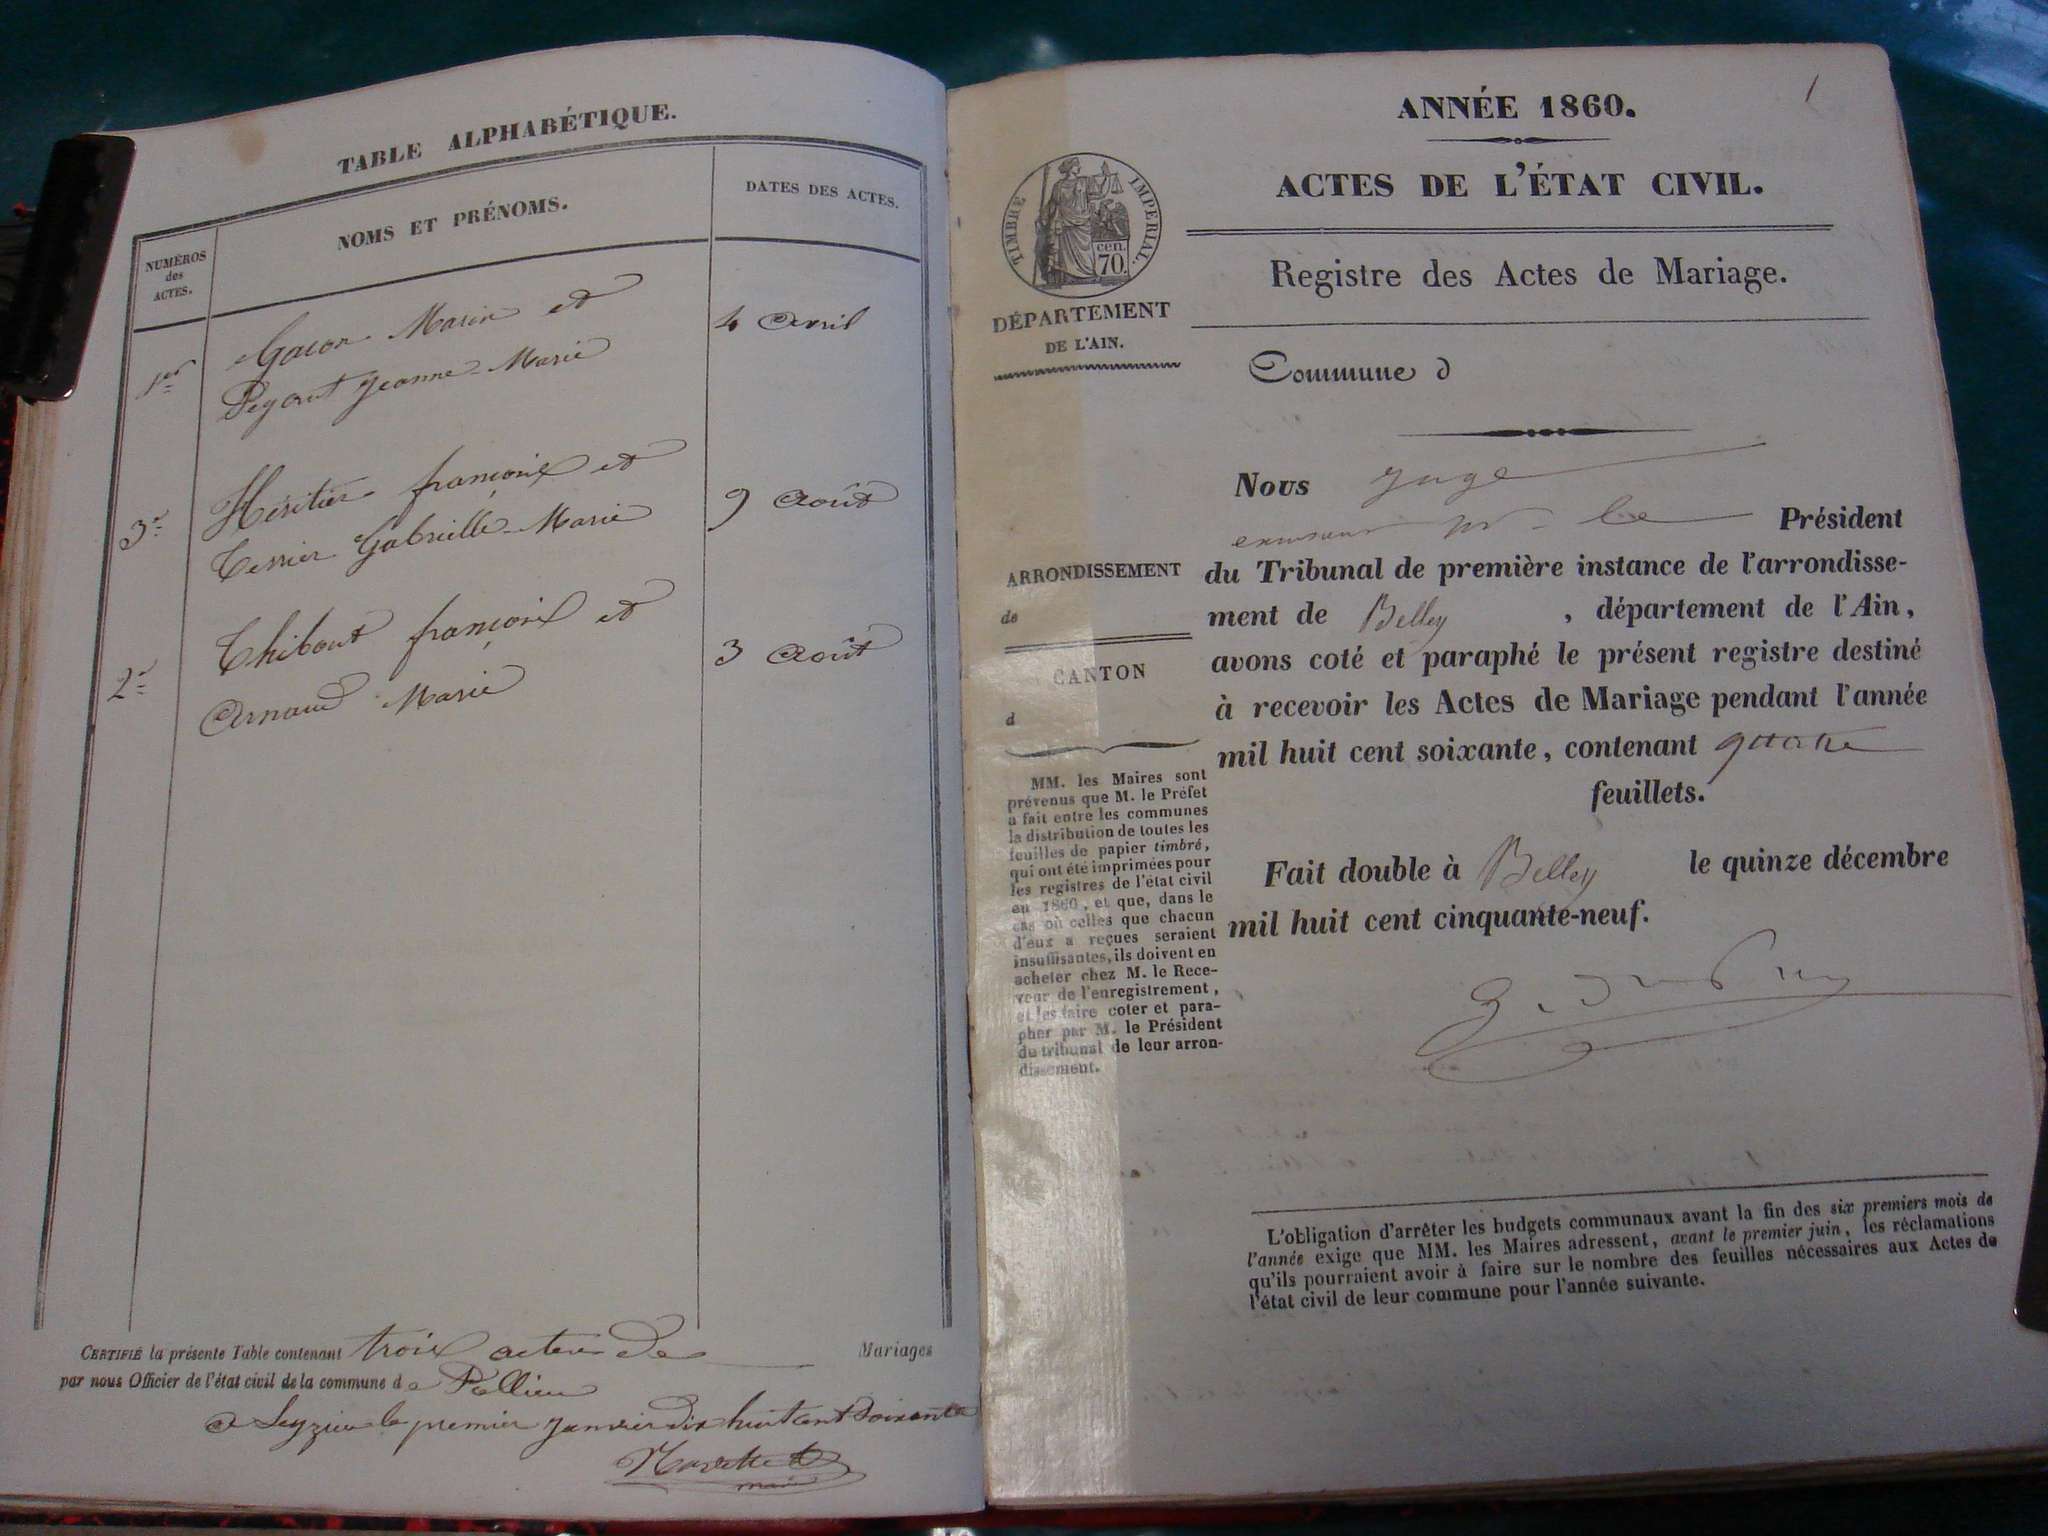 TABLE ALPHABÉTIQUE.
NUMÉROS
des
ACTES.
NOMS ET PRÉNOMS.
DATES DES ACTES.
1er Gacon Marin et 4 Avril
Jeanne-Marie
3e Héritier françois et 9 Août
Terrier Gabrielle-Marie
2e Thibout françois et 3 Août
Arnaud Marie
CERTIFIÉ la présente Table contenant trois actes de Mariages
par nous Officier de l'état civil de la commune de Pollieu
a Seyzieu le premier Janvier dix huit cent soixante
maire
1
ANNÉE 1860.
ACTES DE L'ÉTAT CIVIL.
Registre des Actes de Mariage.
TIMBRE IMPERIAL.
cen.
70.
DÉPARTEMENT
DE L'AIN.
Commune d
Nous Juge
Mr le Président
du Tribunal de première instance de l'arrondisse-
ment de Belley , département de l'Ain,
avons coté et paraphé le présent registre destiné
à recevoir les Actes de Mariage pendant l'année
mil huit cent soixante, contenant quatre
feuillets.
Fait double à Belley le quinze décembre
mil huit cent cinquante-neuf.
ARRONDISSEMENT
de
CANTON
d
MM. les Maires sont
prévenus que M. le Préfet
a fait entre les communes
la distribution de toutes les
feuilles de papier timbré,
qui ont été imprimées pour
les registres de l'état civil
en 1860, et que, dans le
cas où celles que chacun
d'eux a reçues seraient
insuffisantes, ils doivent en
acheter chez M. le Rece-
veur de l'enregistrement,
et les faire coter et para-
pher par M. le Président
du tribunal de leur arron-
dissement.
L'obligation d'arrêter les budgets communaux avant la fin des six premiers mois de
l'année exige que MM. les Maires adressent, avant le premier juin, les réclamations
qu'ils pourraient avoir à faire sur le nombre des feuilles nécessaires aux Actes de
l'état civil de leur commune pour l'année suivante.